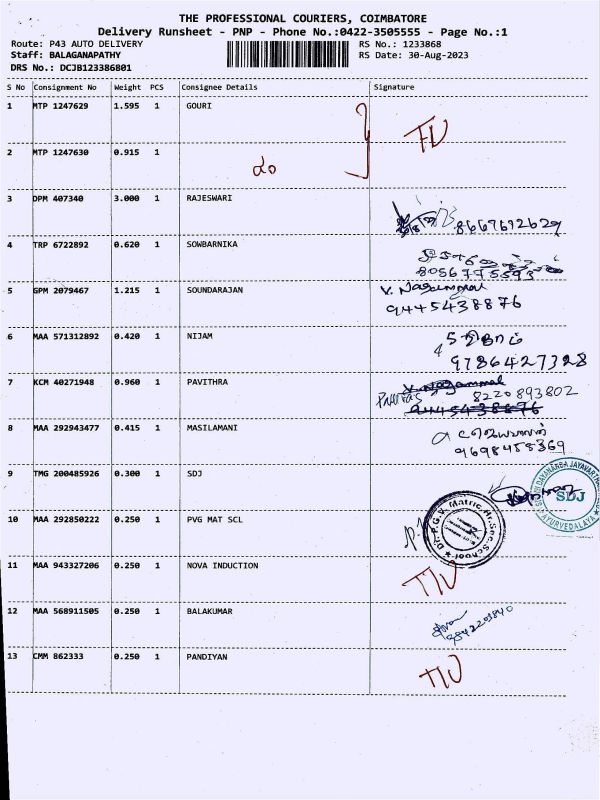 THE PROFESSIONAL COURIERS, COIMBATORE
Delivery Runsheet - PNP - Phone No.:0422-3505555 - Page No.:1
Route: P43 AUTO DELIVERY RS No.: 1233868
Staff: BALAGANAPATHY RS Date: 30-Aug-2023
DRS No.: DCJB123386801
S No Consignment No Weight PCS Consignee Details Signature
1 MTP 1247629 1.595 1 GOURI
2 MTP 1247630 0.915 1
3 DPM 407340 3.000 1 RAJESWARI
8667692629
4 TRP 6722892 0.620 1 SOWBARNIKA
8056775593
5 GPM 2079467 1.215 1 SOUNDARAJAN V. Nagammal
9445438876
6 MAA 571312892 0.420 1 NIJAM
9786427328
7 KCM 40271948 0.960 1 PAVITHRA V. Nagammal
8220893802
9445438876
8 MAA 292943477 0.415 1 MASILAMANI
9698458369
9 TMG 200485926 0.300 1 SDJ
SDJ
10 MAA 292850222 0.250 1 PVG MAT SCL
Dr. P.G.V. Matric.Hr.Sec.School
11 MAA 943327206 0.250 1 NOVA INDUCTION
12 MAA 568911505 0.250 1 BALAKUMAR
9842203840
13 CMM 862333 0.250 1 PANDIYAN